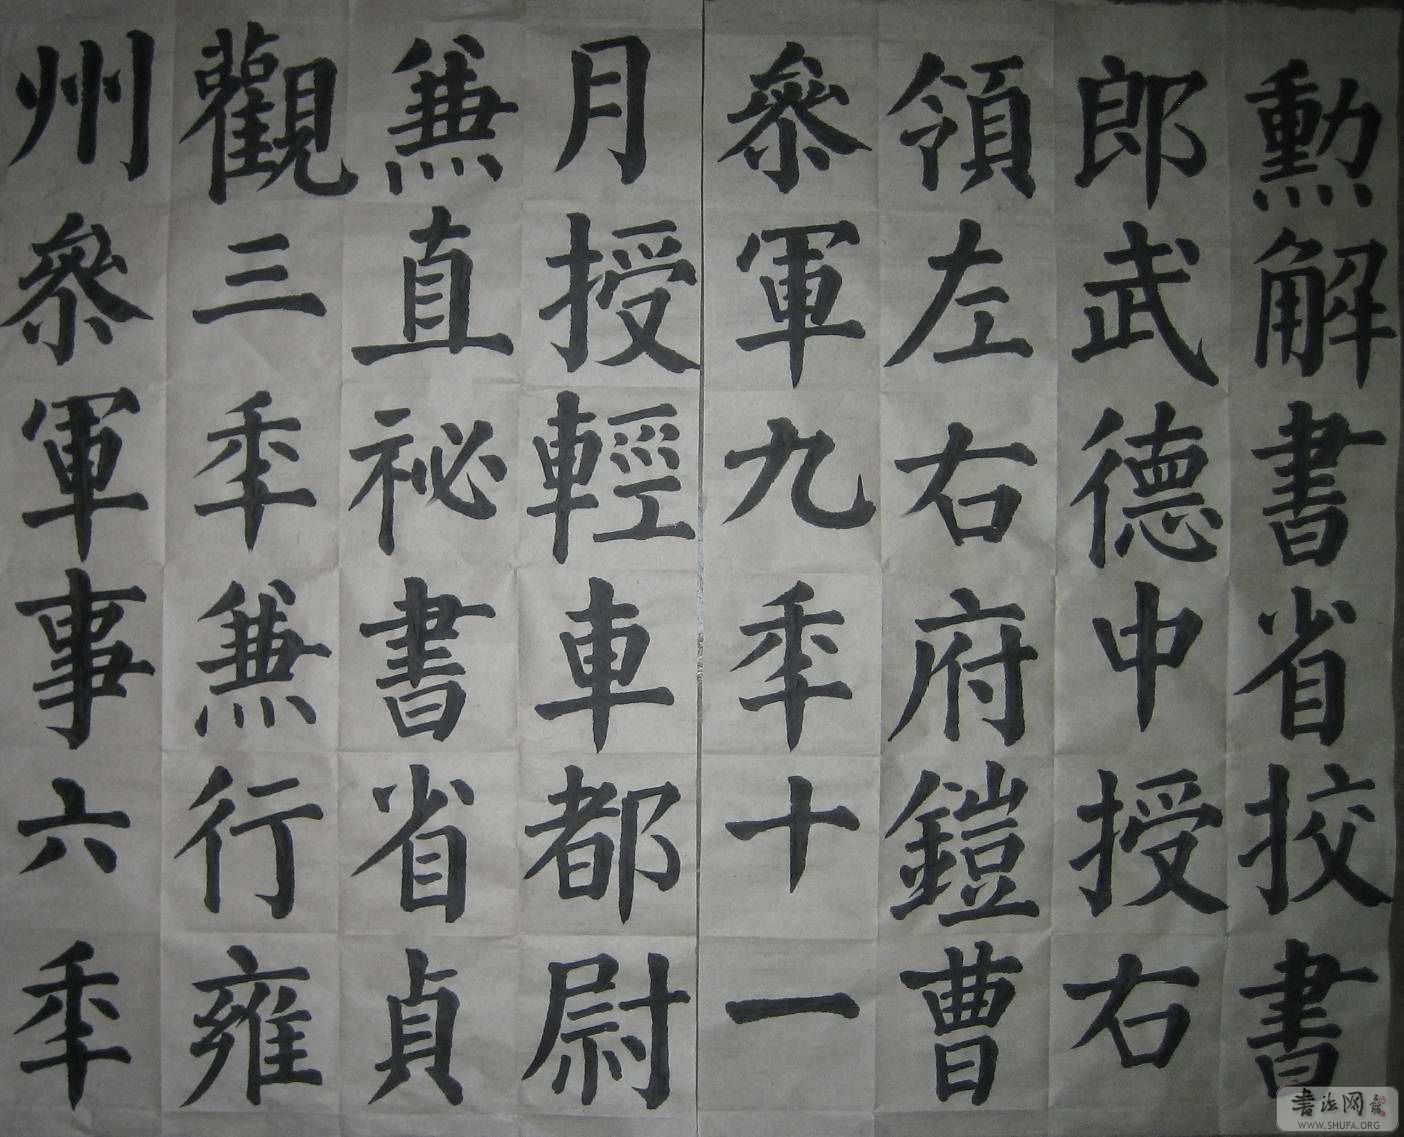 勳解書省挍書
郎武德中授右
領左右府鎧曹
參軍九秊十一
月授輕車都尉
兼直祕書省貞
觀三秊兼行雍
州參軍事六秊
书法网
WWW.SHUFA.ORG